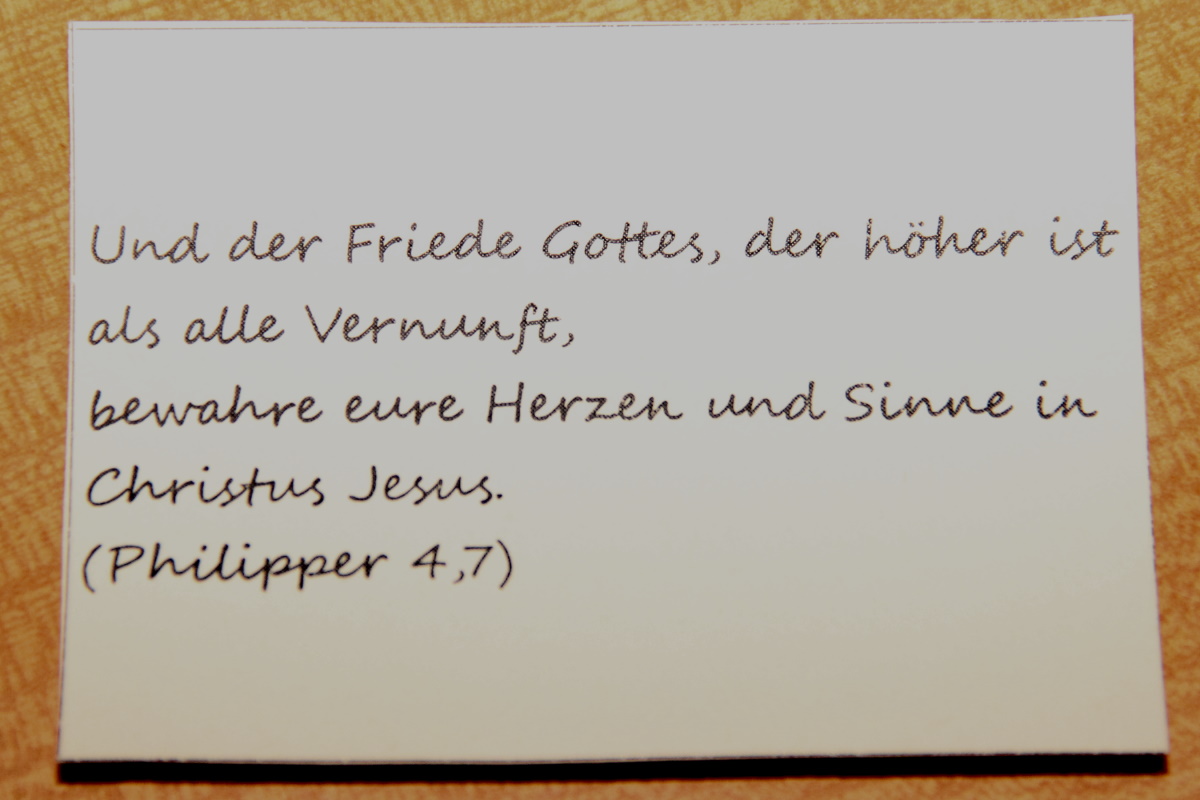 Und der Friede Gottes, der höher ist
als alle Vernunft,
bewahre eure Herzen und Sinne in
Christus Jesus.
(Philipper 4,7)